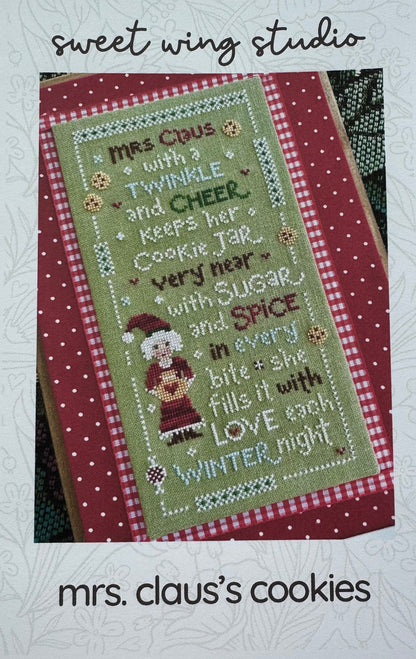 sweet wing studio
MRS CLAUS
with a
TWINKLE
and CHEER
KEEPS her
COOKIE JAR
very near
with SUGAR
and SPICE
in every
bite she
fills it with
LOVE each
WINTER night
mrs. claus's cookies